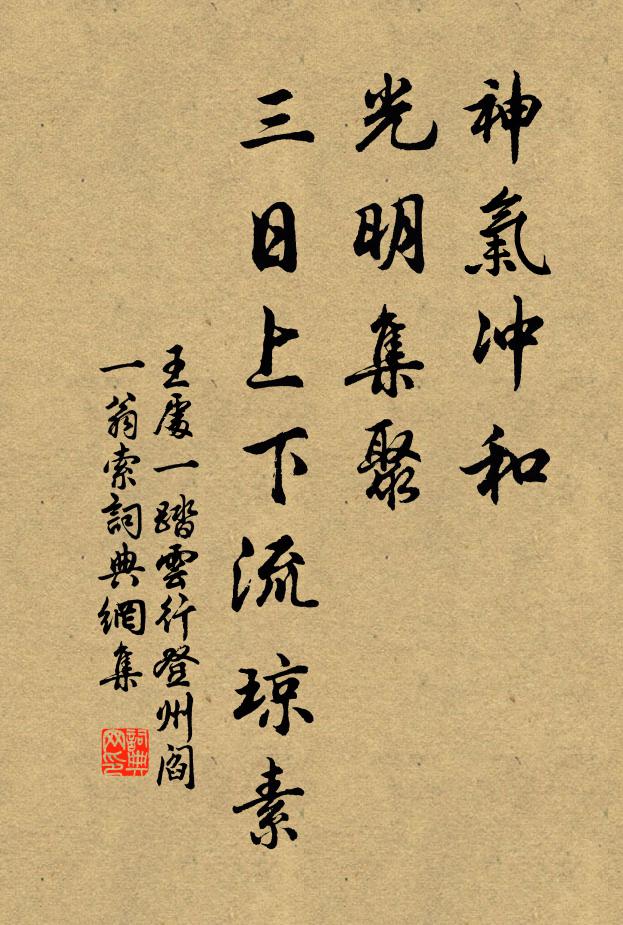 神氣沖和
光明集聚
三日上下流琼素
王處一踏雲行登州閻
一翁索詞典網集
詞典網印